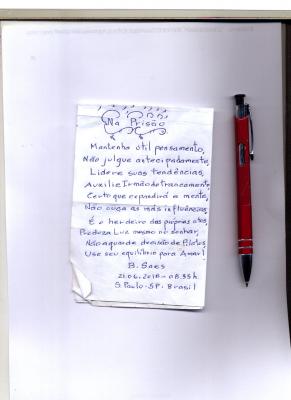 Na Prisão
Mantenha útil pensamento,
Não julgue antecipadamente,
Lidere suas tendências,
Auxilie Irmão do trancamento,
Certo que expandirá a mente,
Não ouça as más influências,
É o herdeiro das próprias atos
Produza Luz mesmo no sonhar,
Não aguarde decisão de Pilatos,
Use seu equilíbrio para Amar!
B. Saes
21.06.2018 - 08.35h
S. Paulo - SP - Brasil